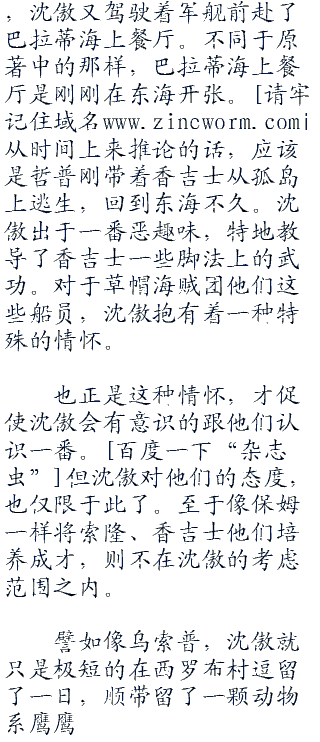 ，沈傲又驾驶着军舰前赴了
巴拉蒂海上餐厅。不同于原
著中的那样，巴拉蒂海上餐
厅是刚刚在东海开张。[请牢
记住域名www.zincworm.com|
从时间上来推论的话，应该
是哲普刚带着香吉士从孤岛
上逃生，回到东海不久。沈
傲出于一番恶趣味，特地教
导了香吉士一些脚法上的武
功。对于草帽海贼团他们这
些船员，沈傲抱有着一种特
殊的情怀。
也正是这种情怀，才促
使沈傲会有意识的跟他们认
识一番。[百度一下“杂志
虫”]但沈傲对他们的态度，
也仅限于此了。至于像保姆
一样将索隆、香吉士他们培
养成才，则不在沈傲的考虑
范围之内。
譬如像乌索普，沈傲就
只是极短的在西罗布村逗留
了一日，顺带留了一颗动物
系鹰鹰